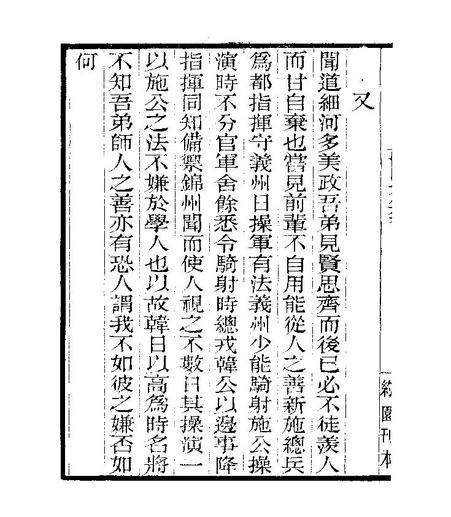 又
聞道細河多美政吾弟見賢思齊而後已必不徒羨人
而甘自棄也嘗見前輩不自用能從人之善新施總兵
爲都指揮守義州日操軍有法義州少能騎射施公操
演時不分官軍舍餘悉令騎射時總戎韓公以邊事降
指揮同知備禦錦州聞而使人視之不數日其操演一
以施公之法不嫌於學人也以故韓日以高爲時名將
不知吾弟師人之善亦有恐人謂我不如彼之嫌否如
何
約園刊本